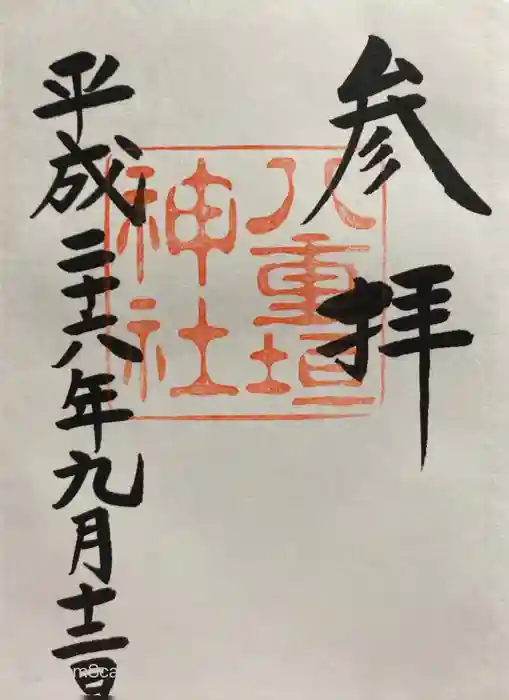 参拝
八重垣
神社
平成二十八年九月十二日